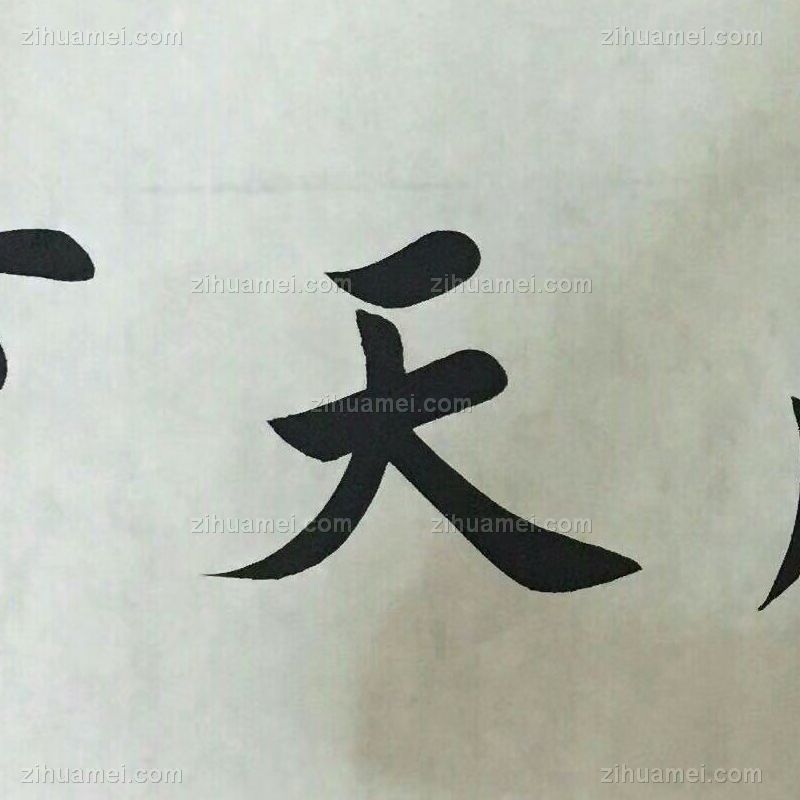 zihuamei.com zihuamei.com
zihuamei.com zihuamei.com
天
zihuamei.com
zihuamei.com zihuamei.com
zihuamei.com zihuamei.com